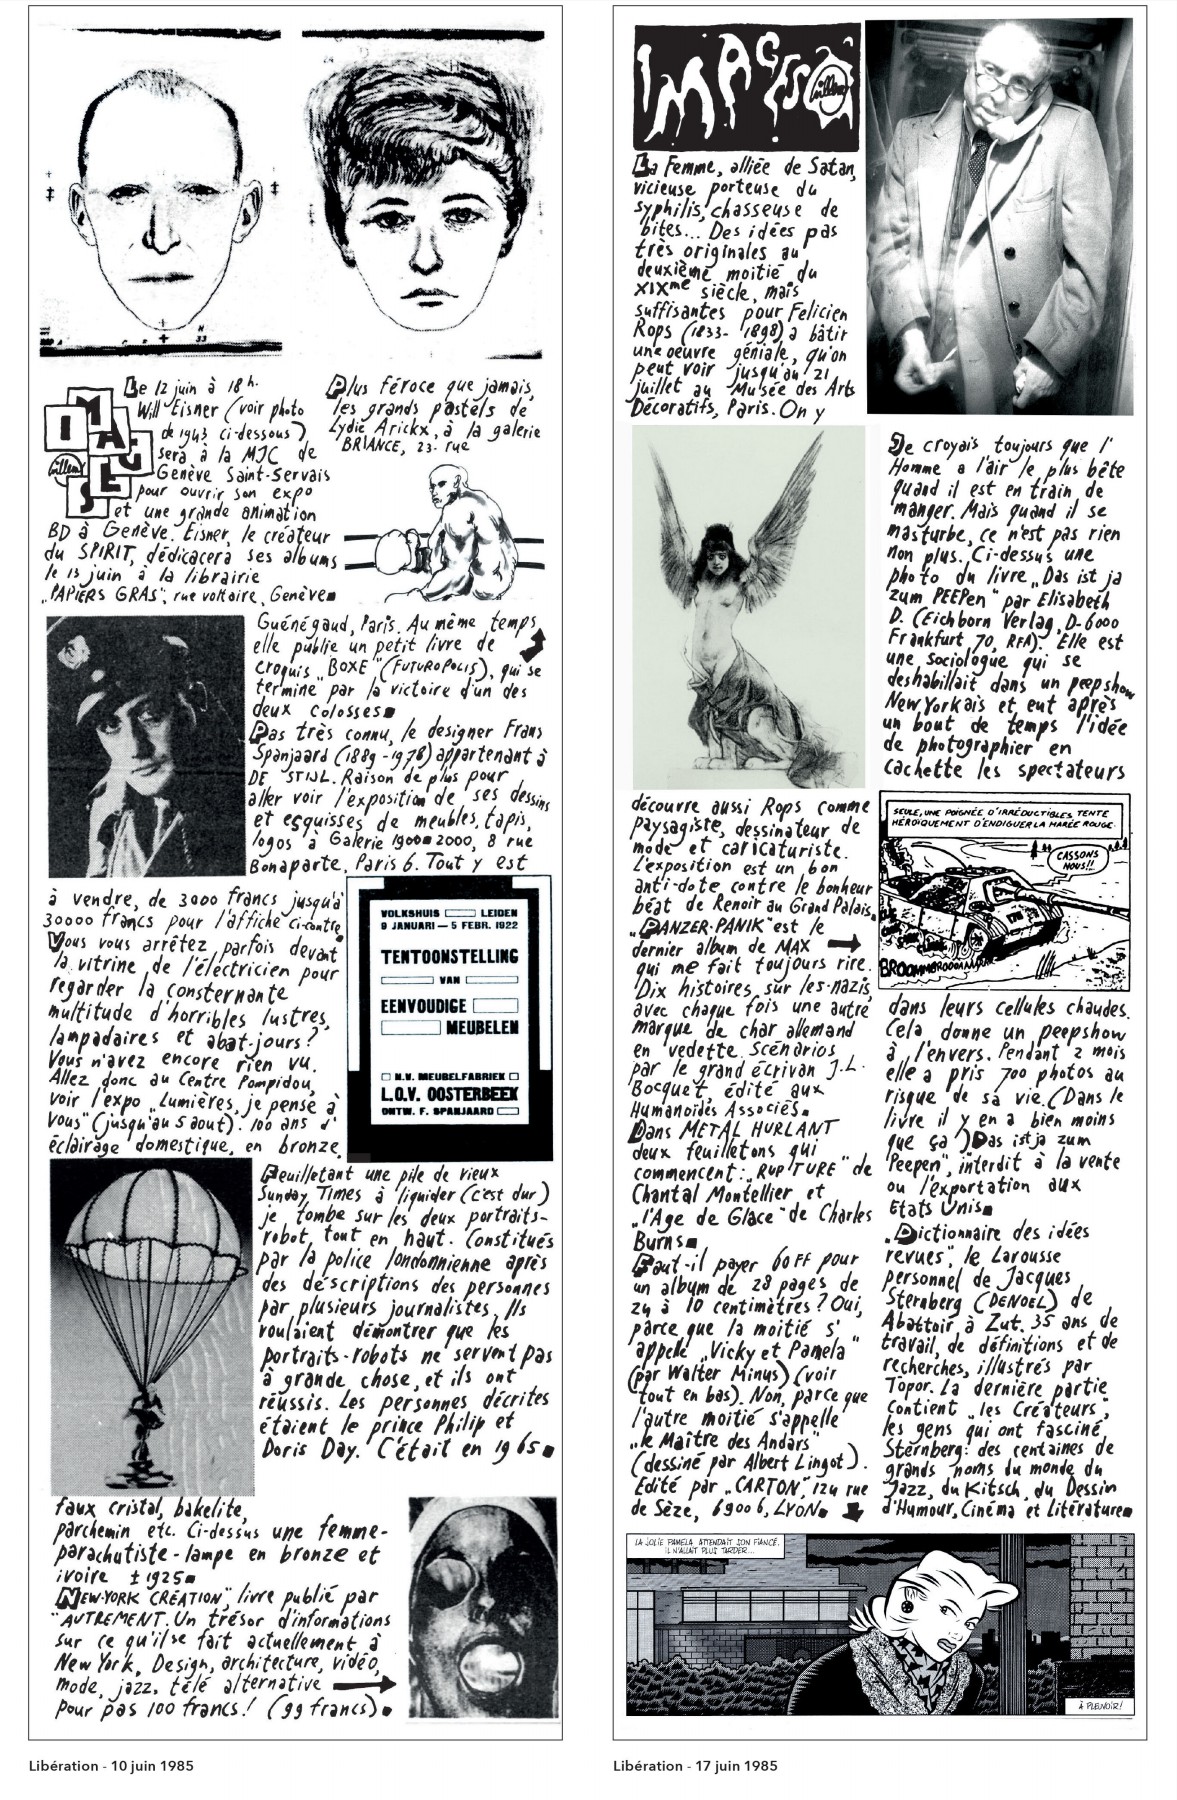 IMAGES
Willem
Le 12 juin à 18h.
Will Eisner (voir photo
de 1943, ci-dessous)
sera à la MJC de
Genève Saint-Servais
pour ouvrir son expo
et une grande animation
BD à Genève. Eisner, le créateur
du SPIRIT, dédicacera ses albums
le 13 juin à la librairie
„PAPIERS GRAS", rue voltaire, Genève
Plus féroce que jamais,
les grands pastels de
Lydie Arickx, à la galerie
BRIANCE, 23. rue
Guénégaud, Paris. Au même temps
elle publie un petit livre de
croquis „BOXE" (FUTUROPOLIS), qui se
termine par la victoire d'un des
deux colosses
Pas très connu, le designer Frans
Spanjaard (1889-1978) appartenant à
DE STIJL. Raison de plus pour
aller voir l'exposition de ses dessins
et esquisses de meubles, tapis,
logos à Galerie 1900-2000, 8 rue
Bonaparte, Paris 6. Tout y est
à vendre, de 3000 francs jusqu'à
30000 francs pour l'affiche ci-contre
Vous vous arrêtez parfois devant
la vitrine de l'électricien pour
regarder la consternante
multitude d'horribles lustres,
lampadaires et abat-jours?
Vous n'avez encore rien vu.
Allez donc au Centre Pompidou,
voir l'expo „Lumières, je pense à
vous" (jusqu'au 5 aout). 100 ans d'
éclairage domestique, en bronze,
VOLKSHUIS LEIDEN
9 JANUARI — 5 FEBR. 1922
TENTOONSTELLING
VAN
EENVOUDIGE
MEUBELEN
N.V. MEUBELFABRIEK
L.O.V. OOSTERBEEK
ONTW. F. SPANJAARD
faux cristal, bakelite,
parchemin etc. Ci-dessus une femme-
parachutiste-lampe en bronze et
ivoire ± 1925
„NEW-YORK CRÉATION", livre publié par
"AUTREMENT. Un trésor d'informations
sur ce qu'il se fait actuellement à
New York, Design, architecture, vidéo,
mode, jazz, télé alternative
pour pas 100 francs! (99 francs)
Feuilletant une pile de vieux
Sunday Times à liquider (c'est dur)
je tombe sur les deux portraits-
robot, tout en haut. Constitués
par la police londonnienne après
des déscriptions des personnes
par plusieurs journalistes. Ils
voulaient démontrer que les
portraits-robots ne servent pas
à grande chose, et ils ont
réussis. Les personnes décrites
étaient le prince Philip et
Doris Day. C'était en 1965
Libération - 10 juin 1985
IMAGES
Willem
La Femme, alliée de Satan,
vicieuse porteuse du
syphilis, chasseuse de
bites... Des idées pas
très originales au
deuxième moitié du
XIXme siècle, mais
suffisantes pour Felicien
Rops (1833-1898) a bâtir
une oeuvre géniale, qu'on
peut voir jusqu'au 21
juillet au Musée des Arts
Décoratifs, Paris. On y
découvre aussi Rops comme
paysagiste, dessinateur de
mode et caricaturiste.
L'exposition est un bon
anti-dote contre le bonheur
béat de Renoir au Grand Palais.
„PANZER-PANIK" est le
dernier album de MAX
qui me fait toujours rire.
Dix histoires, sur les nazis,
avec chaque fois une autre
marque de char allemand
en vedette. Scénarios
par le grand écrivan J.L.
Bocquet, édité aux
Humanoïdes Associés
Dans METAL HURLANT
deux feuilletons qui
commencent: „RUPTURE" de
Chantal Montellier et
„l'Age de Glace" de Charles
Burns
Faut-il payer 60 FF pour
un album de 28 pages de
24 à 10 centimètres? Oui,
parce que la moitié s'
appelle „Vicky et Pamela"
(par Walter Minus) (voir
tout en bas). Non, parce que
l'autre moitié s'appelle
„le Maître des Andars"
(dessiné par Albert Lingot).
Edité par „CARTON", 124 rue
de Sèze, 69006, LYON
Je croyais toujours que l'
Homme a l'air le plus bête
quand il est en train de
manger. Mais quand il se
masturbe, ce n'est pas rien
non plus. Ci-dessus une
photo du livre „Das ist ja
zum PEEPen" par Elisabeth
D. (Eichborn Verlag, D-6000
Frankfurt 70, RFA). Elle est
une sociologue qui se
deshabillait dans un peepshow
NewYorkais et eut après
un bout de temps l'idée
de photographier en
cachette les spectateurs
SEULE, UNE POIGNÉE D'IRRÉDUCTIBLES, TENTE
HÉROÏQUEMENT D'ENDIGUER LA MARÉE ROUGE.
CASSONS
NOUS!!
BROOMMBROOOAMMMRR
dans leurs cellules chaudes.
Cela donne un peepshow
à l'envers. Pendant 2 mois
elle a pris 700 photos au
risque de sa vie. (Dans le
livre il y en a bien moins
que ça) „Das ist ja zum
Peepen", interdit à la vente
ou l'exportation aux
Etats Unis
„Dictionnaire des idées
revues", le Larousse
personnel de Jacques
Sternberg (DENOEL) de
Abattoir à Zut. 35 ans de
travail, de définitions et de
recherches, illustrés par
Topor. La dernière partie
contient „les Créateurs",
les gens qui ont fasciné
Sternberg: des centaines de
grands noms du monde du
Jazz, du Kitsch, du Dessin
d'Humour, Cinéma et Litérature
LA JOLIE PAMELA ATTENDAIT SON FIANCÉ.
IL N'ALLAIT PLUS TARDER...
À PLEUVOIR!
Libération - 17 juin 1985